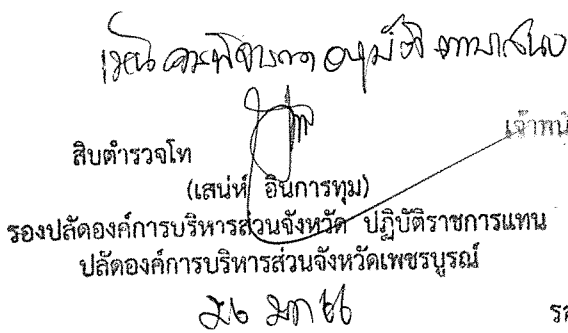 เห็นควรพิจารณาอนุมัติตามเสนอ
เจ้าพน
สิบตำรวจโท
(เสน่ห์ อินการทุม)
รองปลัดองค์การบริหารส่วนจังหวัด ปฏิบัติราชการแทน
ปลัดองค์การบริหารส่วนจังหวัดเพชรบูรณ์
มค 66